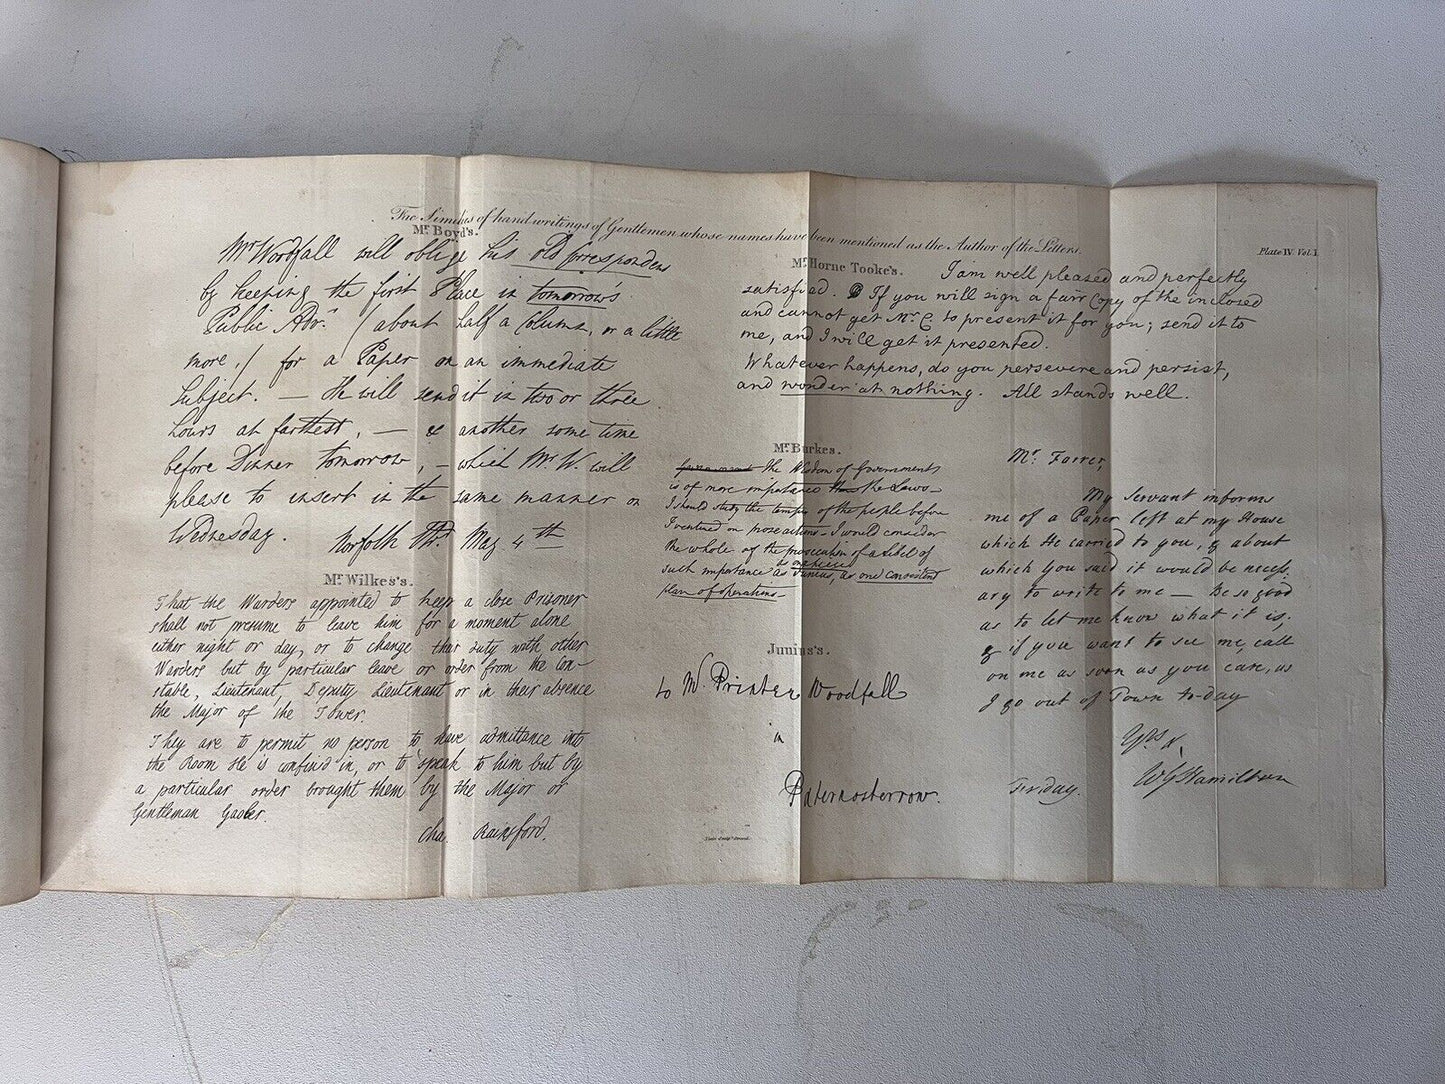 Fac Similes of hand-writings of Gentlemen whose names have been mentioned as the Author of the Letters.
Plate IV Vol. I.
Mr. Boyd's.
Mr Woodfall will oblige his old Correspondent
by keeping the first Place in tomorrow's
Public Adv.r (about half a Column, or a little
more,) for a Paper on an immediate
Subject. — He will send it in two or three
hours at farthest, — & another some time
before Dinner tomorrow, — which Mr W. will
please to insert in the same manner on
Wednesday.
Norfolk Str. May 4th
Mr. Wilkes's.
That the Warders appointed to keep a close Prisoner
shall not presume to leave him for a moment alone
either night or day, or to change their duty with other
Warders but by particular leave or order from the Con-
stable, Lieutenant, Deputy Lieutenant or in their absence
the Major of the Tower.
They are to permit no person to have admittance into
the Room He is confin'd in, or to speak to him but by
a particular order brought them by the Major or
Gentleman Gaoler.
Cha. Rainsford.
Mr. Horne Tooke's.
I am well pleased and perfectly
satisfied. If you will sign a fair Copy of the inclosed
and cannot get Mr. C. to present it for you; send it to
me, and I will get it presented.
Whatever happens, do you persevere and persist,
and wonder at nothing. All stands well.
Mr. Burkes.
the Wisdom of Governments
is of more importance than the Laws—
I should study the temper of the people before
I ventured on prosecutions— I would consider
the whole of the prosecution of a Libel of
such importance as Junius, as one consistent
plan of operations—
Junius's.
to Mr. Printer Woodfall
in
Paternosterrow.
Mr. Farrer,
My Servant informs
me of a Paper left at my House
which He carried to you, & about
which you said it would be necess-
ary to write to me — Be so good
as to let me know what it is.
& if you want to see me, call
on me as soon as you can, as
I go out of Town to-day
Yrs &c.
WGHamilton